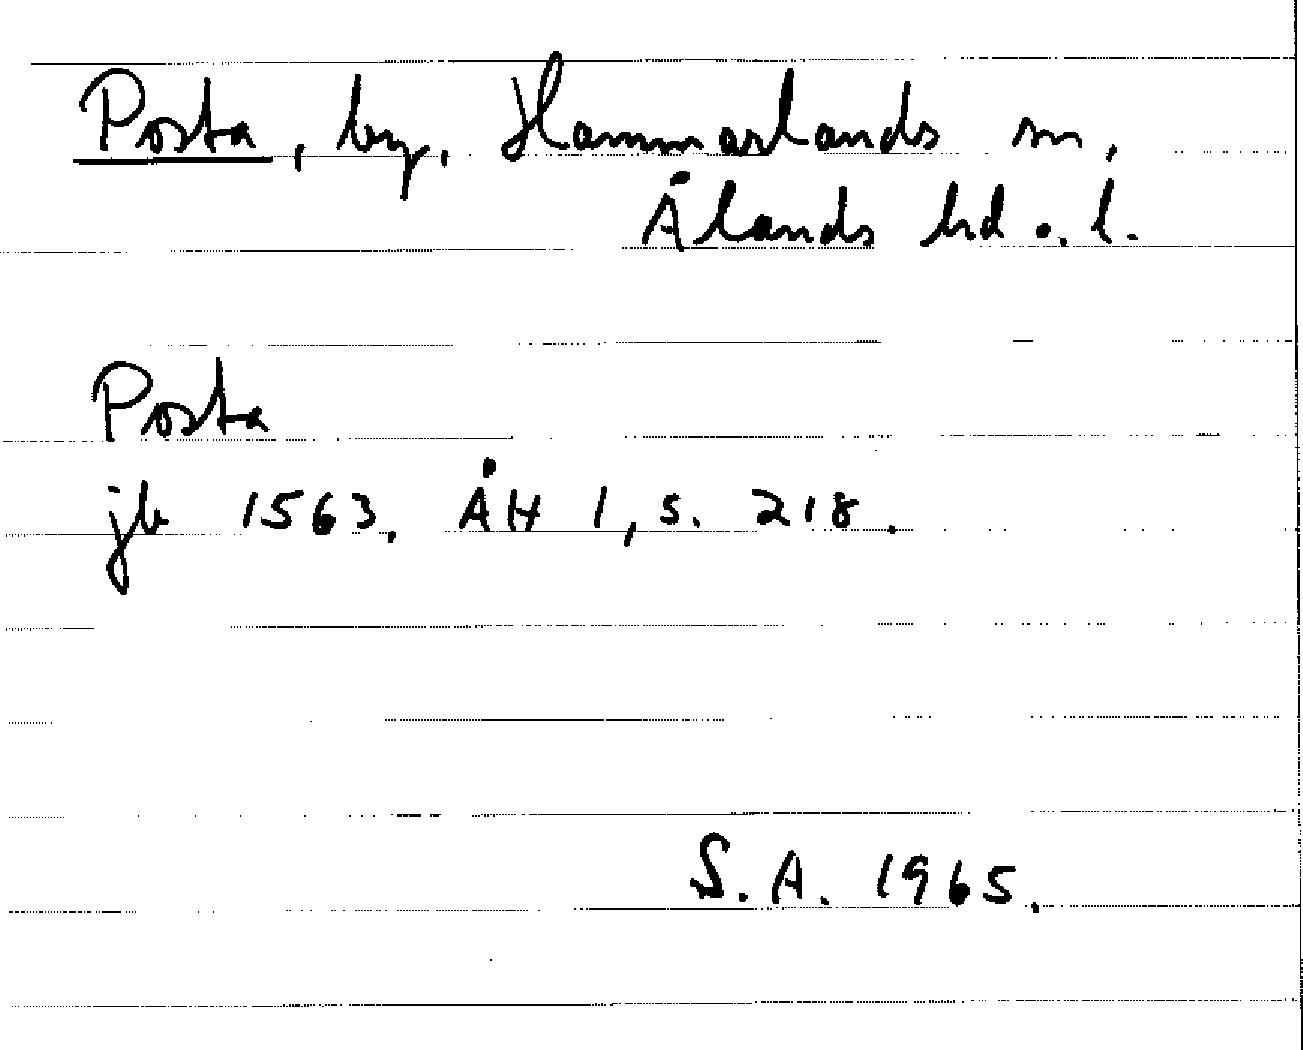 Posta, by, Hammarlands sn,
Ålands hd o. l.
Posta
jb 1563, ÅH 1, s. 218.
S. A. 1965.